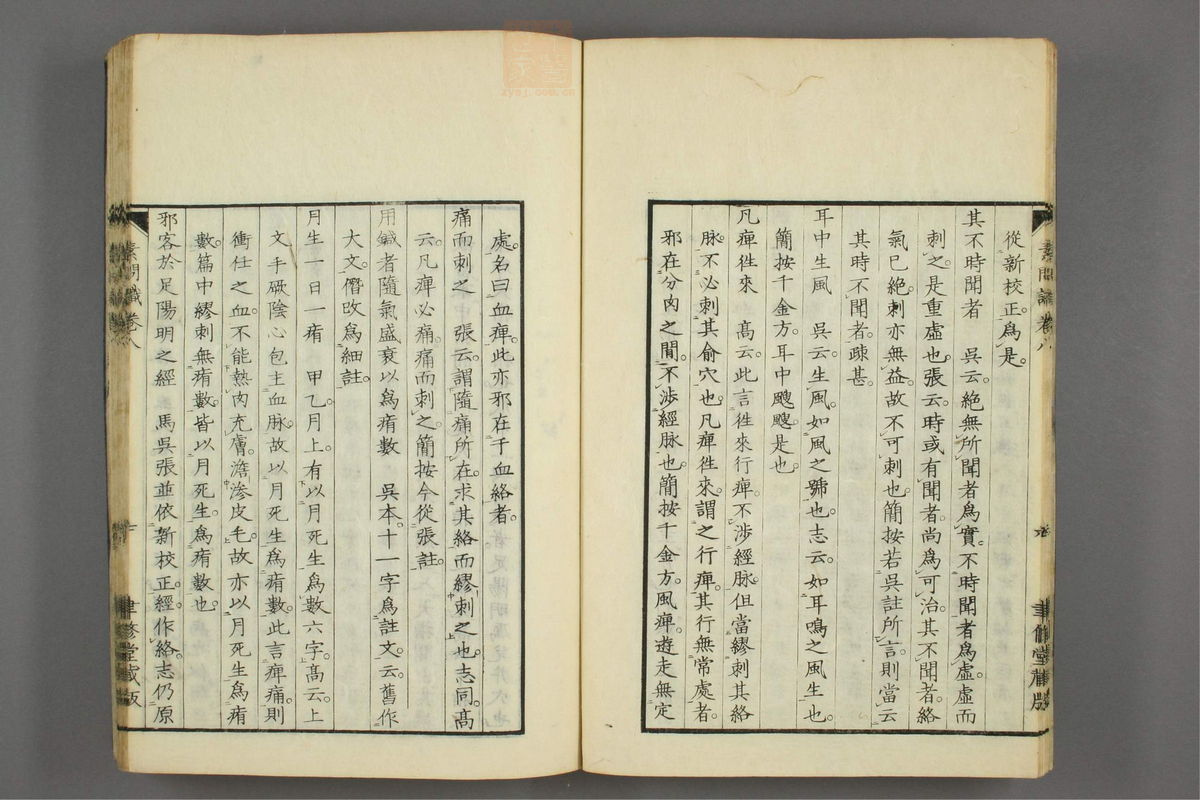 素問識 卷八
聿修堂藏版
從新校正。爲是。
其不時聞者 吳云。絕無所聞者爲實。不時聞者爲虛。虛而
刺之。是重虛也。張云。時或有聞者。尚爲可治。其不聞者。絡
氣已絕。刺亦無益。故不可刺也。簡按若吳註所言。則當云
其時不聞者。疎甚。
耳中生風 吳云。生風。如風之號也。志云。如耳鳴之風生也。
簡按千金方。耳中颼颼。是也。
凡痺往來 高云。此言往來行痺。不涉經脉。但當繆刺其絡
脉。不必刺其俞穴也。凡痺往來。謂之行痺。其行無常處者。
邪在分肉之間。不涉經脉也。簡按千金方。風痺遊走無定
處。名曰血痺。此亦邪在于血絡者。
痛而刺之 張云。謂隨痛所在。求其絡而繆刺之也。志同。高
云。凡痺必痛。痛而刺之。簡按今從張註。
用鍼者隨氣盛衰以爲痏數 吳本。十一字爲註文。云。舊作
大文。僭改爲細註。
月生一日一痏 甲乙。月上。有以月死生爲數六字。高云。上
文手厥陰心包主血脉。故以月死生爲痏數。此言痺痛。則
衝任之血。不能熱肉充膚。澹滲皮毛。故亦以月死生爲痏
數。篇中繆刺無痏數。皆以月死生。爲痏數也。
邪客於足陽明之經 馬吳張並依新校正。經。作絡。志仍原
素問識 卷八
十
聿修堂藏版